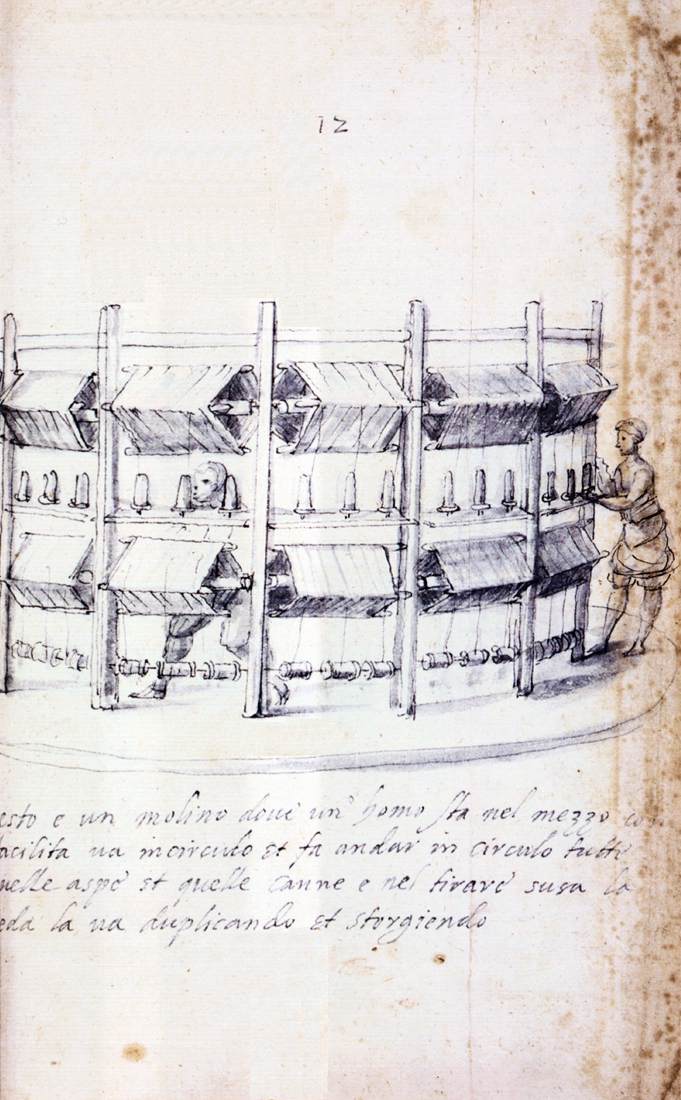 12
esto e un molino dove un' homo sta nel mezzo con
acilita va in circulo et fa andar in circulo tutte
uelle aspe et quelle canne e nel tirare susa la
eda la va duplicando et storgiendo